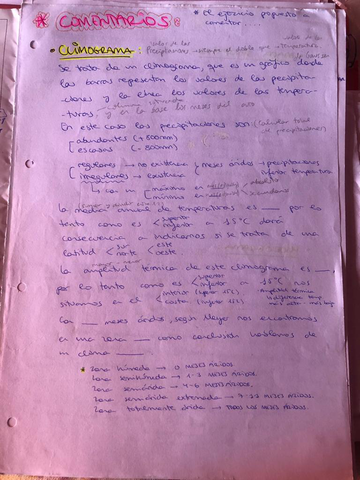 * COMENTARIOS:
* El ejercicio propuesto
consiste....
• CLIMOGRAMA:
Se trata de un climograma, que es un gráfico donde
las barras representan los valores de las precipita-
ciones y la línea los valores de las tempera-
turas, y en la base los meses del año
En este caso las precipitaciones son (calcular total
de precipitaciones)
abundantes (+ 800mm)
escasas (- 800mm)
regulares → no existencia meses áridos → precipitaciones
irregulares → existencia inferior temperatura
↳ con un máximo en
mínimo en
La media anual de temperaturas es ___ por lo
tanto como es superior
inferior a 15°C dará
consecuencia a indicarnos si se trata de una
latitud sur este
norte oeste
La amplitud térmica de este climograma es ___,
por lo tanto como es superior
inferior a 15°C nos
situamos en el interior (super 15)
costa (infer 15)
Amplitud térmica
Los ___ meses áridos, según nos encontramos
en una zona ___ como conclusión hablamos de
un clima ___
* Zona húmeda → 0 MESES ÁRIDOS.
Zona semihúmeda → 1-3 MESES ÁRIDOS.
Zona semiárida → 4-6 MESES ÁRIDOS.
Zona semiárida extremada → 7-11 MESES ÁRIDOS.
Zona totalmente árida → TODOS LOS MESES ÁRIDOS.